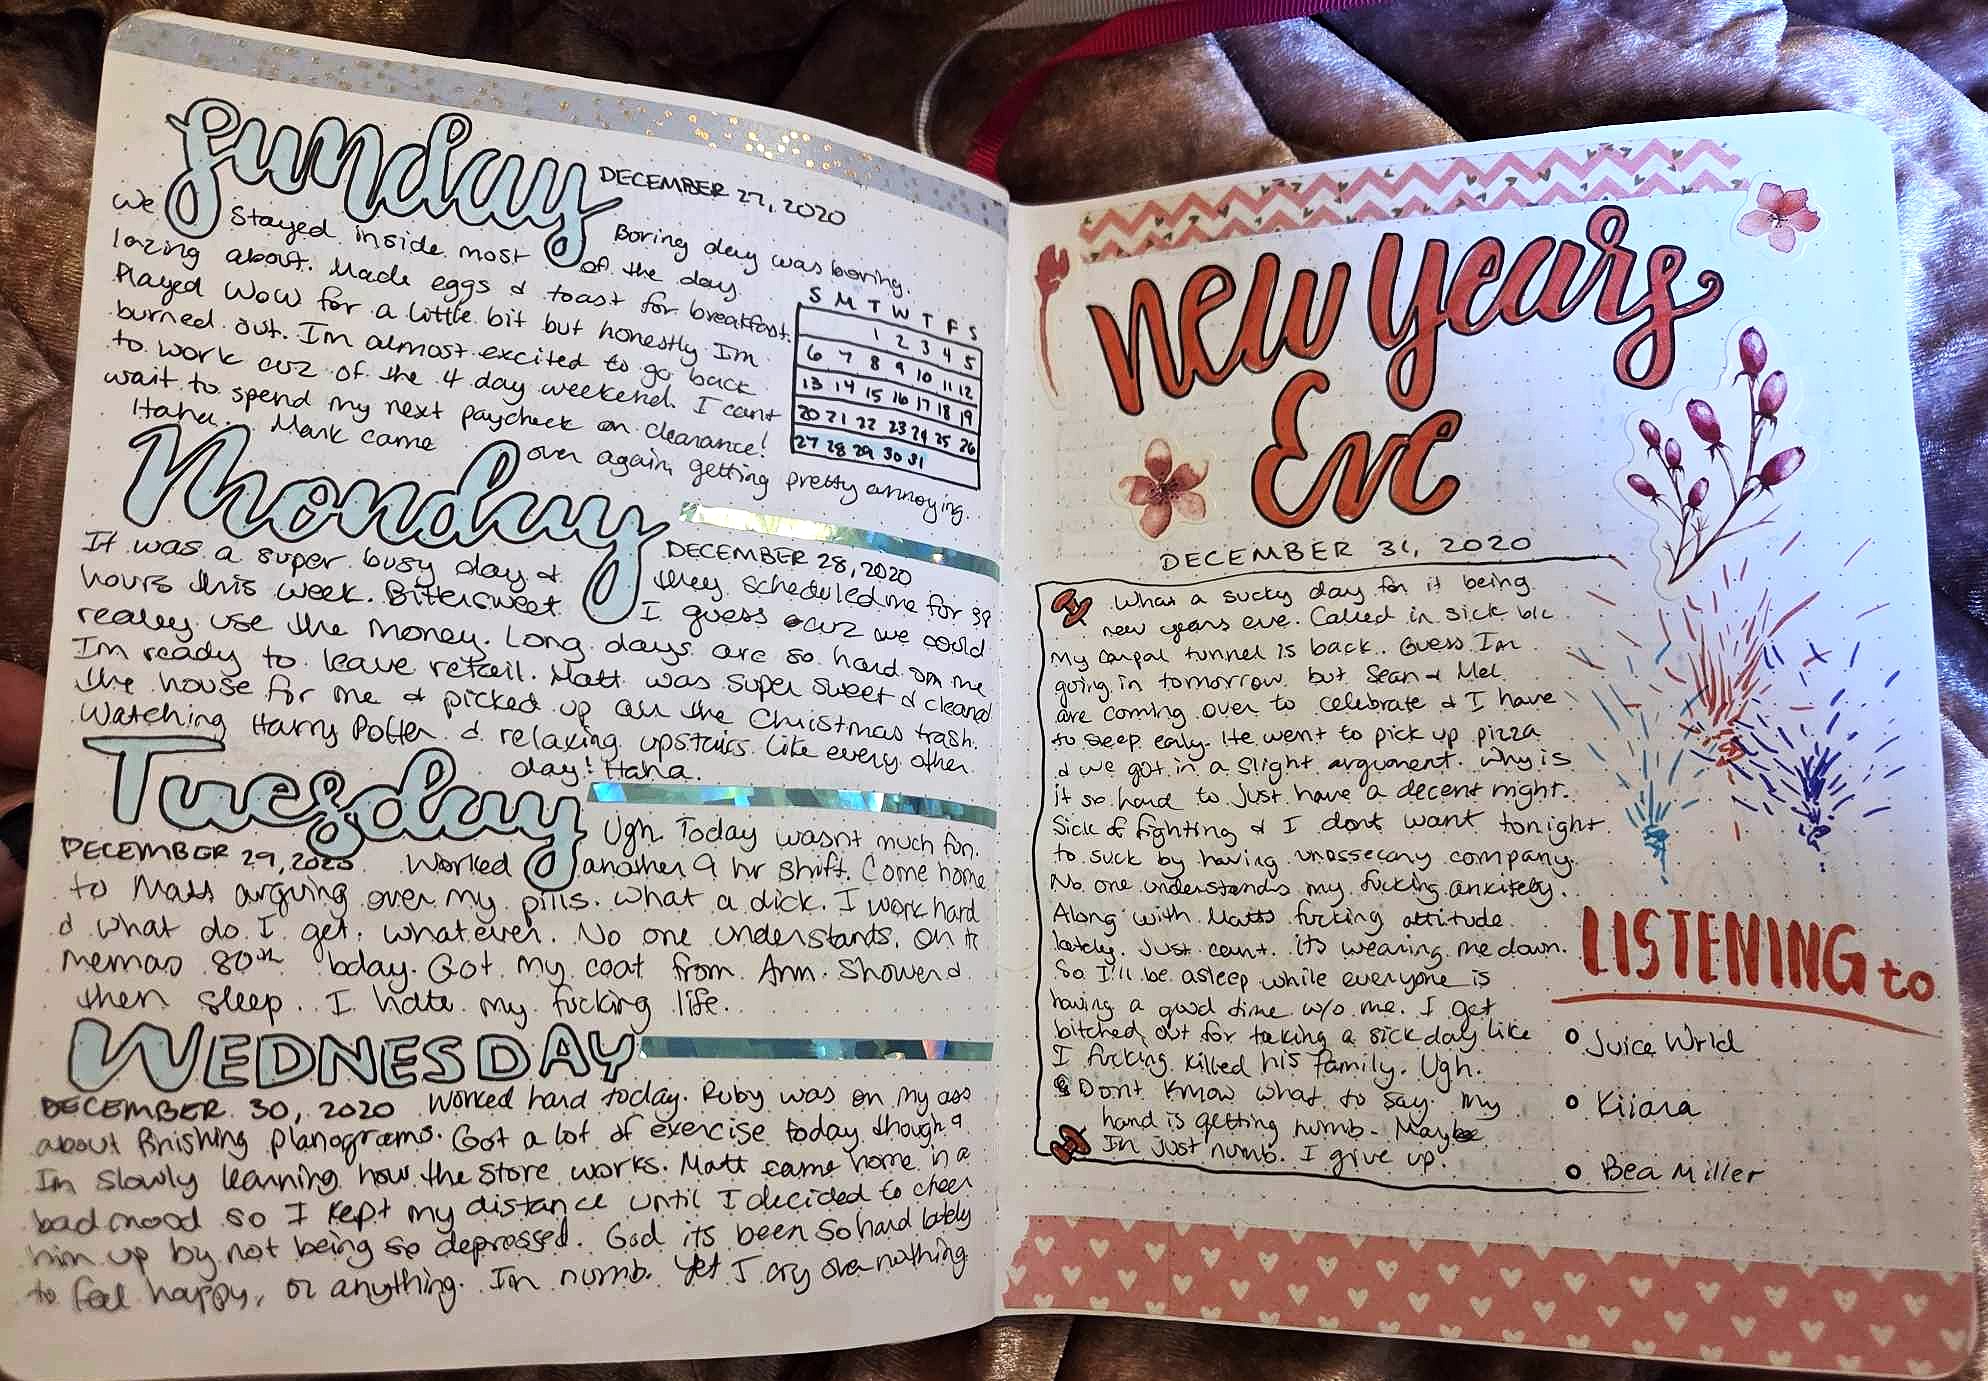 Sunday
DECEMBER 27, 2020
Boring day was boring.
We Stayed inside most of the day
lazing about. Made eggs & toast for breakfast.
Played WoW for a little bit but honestly Im
burned out. I'm almost excited to go back
to work cuz of the 4 day weekend. I cant
wait to spend my next paycheck on clearance!
Haha. Mark came over again, getting pretty annoying.
S M T W T F S
1 2 3 4 5
6 7 8 9 10 11 12
13 14 15 16 17 18 19
20 21 22 23 24 25 26
27 28 29 30 31
Monday
DECEMBER 28, 2020
It was a super busy day & they scheduled me for 38
hours this week. Bittersweet I guess cuz we could
really use the money. Long days are so hard on me
Im ready to leave retail. Matt was super sweet & cleaned
the house for me & picked up all the Christmas trash.
Watching Harry Potter & relaxing upstairs like every other
day! Haha.
Tuesday
Ugh. Today wasnt much fun.
DECEMBER 29, 2020 Worked another 9 hr shift. Come home
to Matt arguing over my pills. What a dick. I work hard
& what do I get. whatever. No one understands. on it
memas 80th bday. Got my coat from Ann. Shower &
then sleep. I hate my fucking life.
WEDNESDAY
DECEMBER 30, 2020 Worked hard today. Ruby was on my ass
about finishing planograms. Got a lot of exercise today though &
Im slowly learning how the store works. Matt came home in a
bad mood so I kept my distance until I decided to cheer
him up by not being so depressed. God its been so hard lately
to feel happy, or anything. Im numb. Yet I cry over nothing
New Years
Eve
DECEMBER 31, 2020
What a sucky day for it being
new years eve. Called in sick b/c
my carpal tunnel is back. Guess Im
going in tomorrow but Sean & Mel
are coming over to celebrate & I have
to sleep early. He went to pick up pizza
& we got in a slight argument. Why is
it so hard to just have a decent night.
Sick of fighting & I dont want tonight
to suck by having unassecary company.
No one understands my fucking anxitety.
Along with Matts fucking attitude
lately. Just cant. its wearing me down.
So I'll be asleep while everyone is
having a good time w/o me. I get
bitched out for taking a sick day like
I fucking killed his family. Ugh.
Dont know what to say. My
hand is getting numb. Maybe
Im just numb. I give up.
LISTENING to
Juice Wrld
Kiiara
Bea Miller